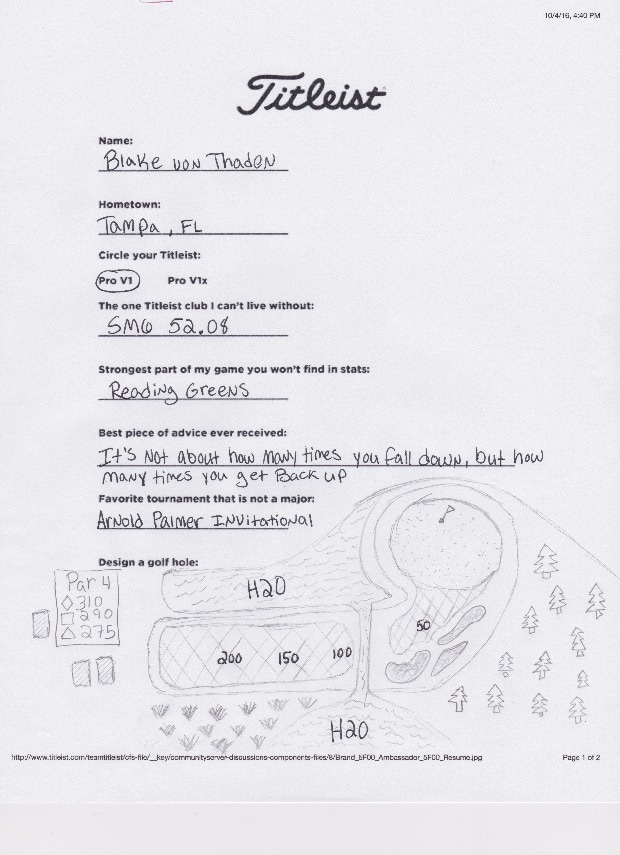 10/4/16, 4:40 PM
Titleist
Name:
Blake von Thaden
Hometown:
Tampa, FL
Circle your Titleist:
Pro V1 Pro V1x
The one Titleist club I can't live without:
SM6 52.08
Strongest part of my game you won't find in stats:
Reading Greens
Best piece of advice ever received:
It's Not about how many times you fall down, but how
many times you get Back up
Favorite tournament that is not a major:
Arnold Palmer Invitational
Design a golf hole:
Par 4
310
290
275
H20
50
200 150 100
H20
http://www.titleist.com/teamtitleist/cfs-file/__key/communityserver-discussions-components-files/8/Brand_5F00_Ambassador_5F00_Resume.jpg Page 1 of 2